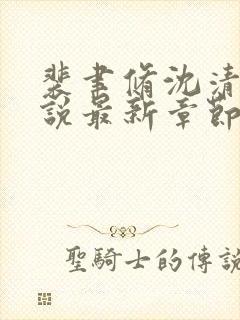 裴聿脩沈清
說最新章節
聖騎士的傳說